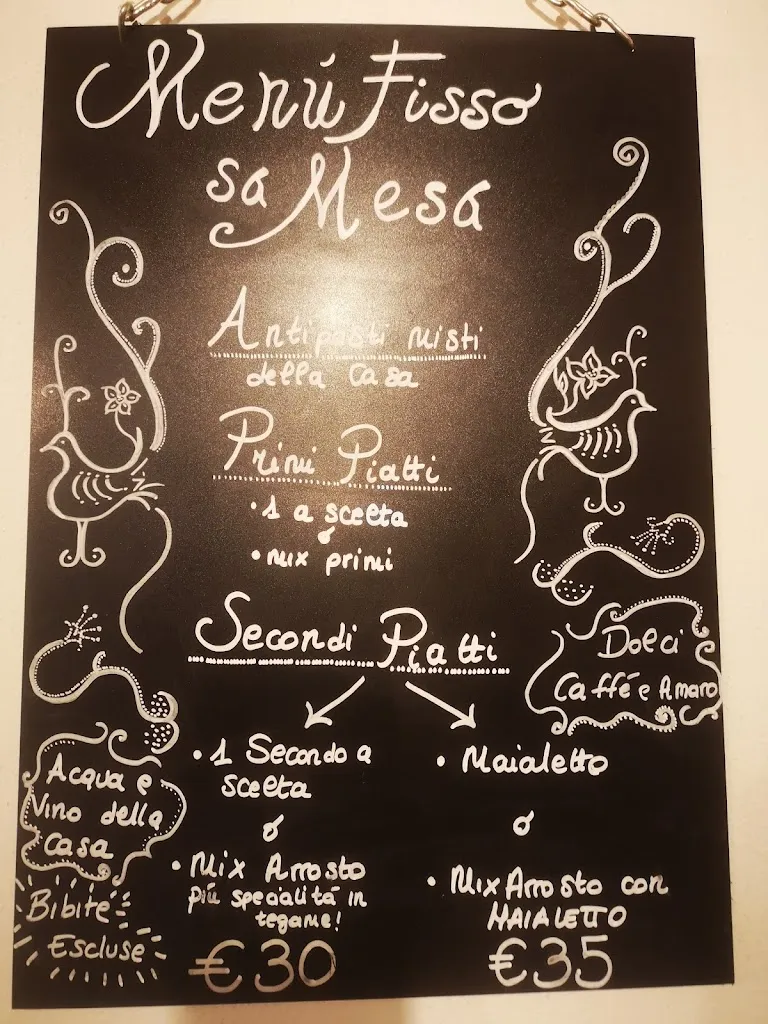 Menú Fisso
sa Mesa
Antipasti misti
della casa
Primi Piatti
• 1 a scelta
o
• mix primi
Secondi Piatti
• 1 Secondo a
scelta
o
• Mix Arrosto
più specialità in
tegame!
€30
• Maialetto
o
• Mix Arrosto con
MAIALETTO
€35
Dolci
Caffé e Amaro
Acqua e
Vino della
casa
Bibite
Escluse